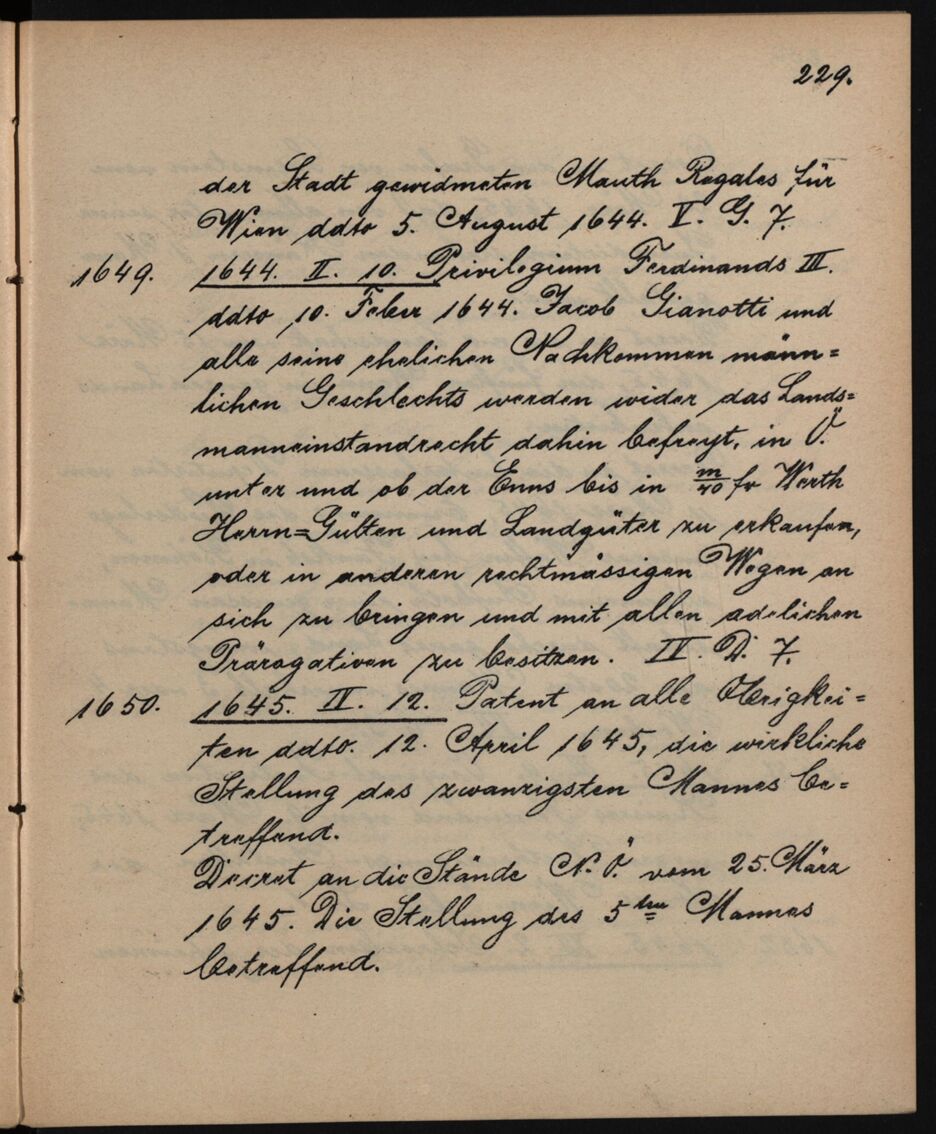 229.
der Stadt gewidmeten Mauth Regales für
Wien ddto 5. August 1644. V. G. 7.
1649. 1644. II. 10. Privilegium Ferdinands III.
ddto 10. Feber 1644. Jacob Gianotti und
alle seine ehelichen Nachkommen männ=
lichen Geschlechts werden wider das Lands=
manneinstandrecht dahin befreyt, in Ö.
unter und ob der Enns bis in m/40 fr Werth
Herrn=Gülten und Landgüter zu erkaufen,
oder in anderen rechtmässigen Wegen an
sich zu bringen und mit allen adelichen
Prärogativen zu besitzen. IV. D. 7.
1650. 1645. IV. 12. Patent an alle Obrigkei=
ten ddto. 12. April 1645, die wirkliche
Stellung des zwanzigsten Mannes be=
treffend.
Decret an die Stände N. Ö. vom 25. März
1645. Die Stellung des 5ten Mannes
betreffend.